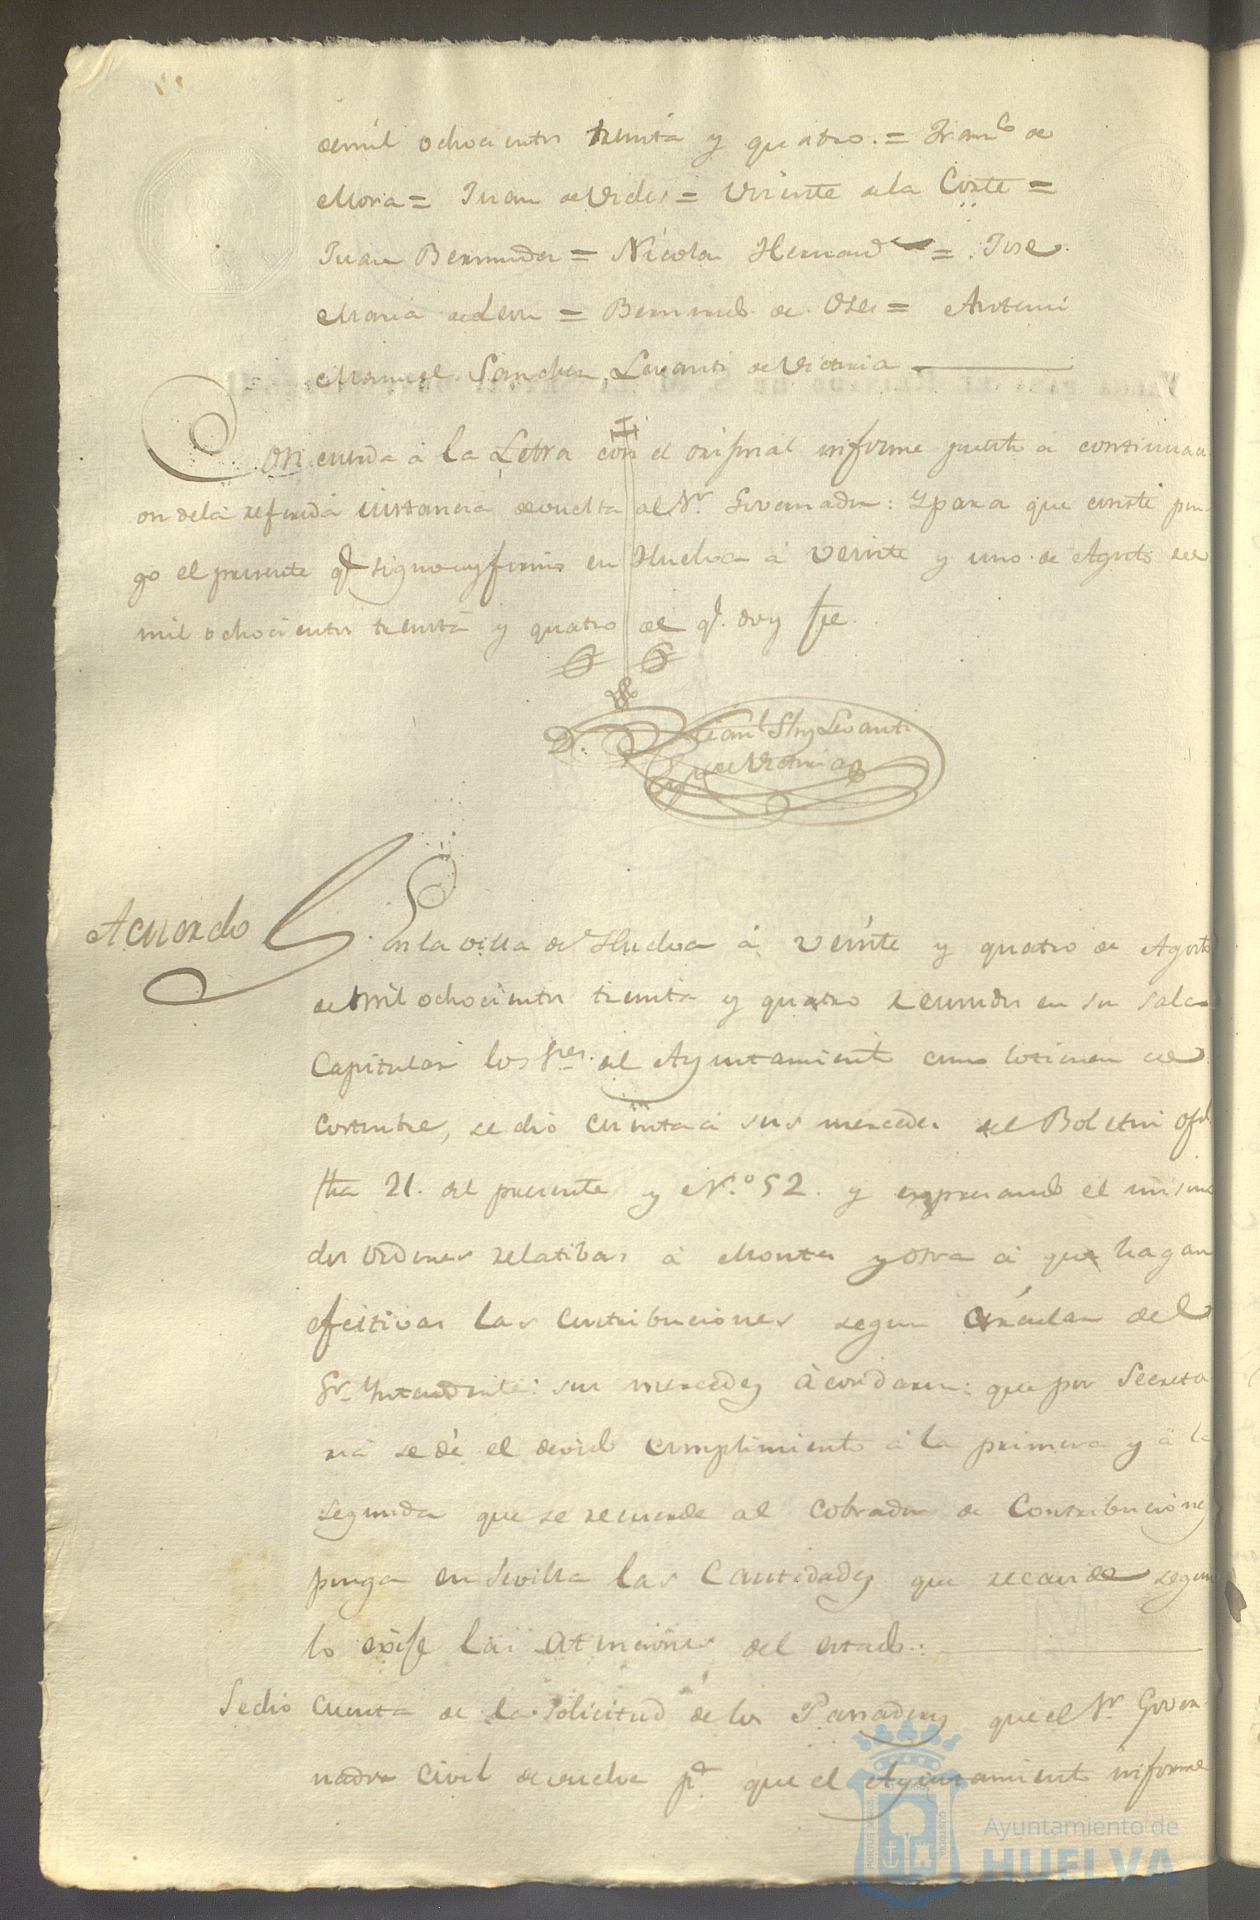 de mil ochocientos treinta y quatro. = Franco de
Mora = Juan de Vides = Vicente de la Corte =
Juan Bermudez = Nicolas Hernandz = Jose
Maria de Leon = Bernardo de Oses = Antonio
Manuel Sanchez Levanti de Victoria
Concuerda a la Letra con el original informe puesto a continuaci
on de la referida instancia devuelta al Sr. Governador: Y para que conste pon
go el presente q.e signo y firmo en Huelva à veinte y uno de Agosto de
mil ochocientos treinta y quatro de q.e doy fee.
Manl Shz Levanti
de Victoria
Acuerdo
En la villa de Huelva à veinte y quatro de Agosto
de mil ochocientos treinta y quatro reunidos en su sala
Capitular los Sres. del Ayuntamiento como lo tienen de
costumbre, se dio cuenta à sus mercedes del Boletin ofl
fha 21. del presente y N.º 52. y expresando el mismo
dos ordenes relatibas à Montes y otra à que hagan
efectivas las contribuciones segun Circular del
Sr. Yntendente: sus mercedes àcordaron: que por Secreta
ria se dè el devido cumplimiento à la primera y à la
segunda que se recuerde al Cobrador de Contribuciones
ponga en Sevilla las Cantidades que recaude segun
lo exije las atenciones del estado.
Se dio cuenta de la solicitud de los Panaderos que el Sr. Gover
nador Civil devuelve pa. que el Ayuntamiento informe
Ayuntamiento de
HUELVA